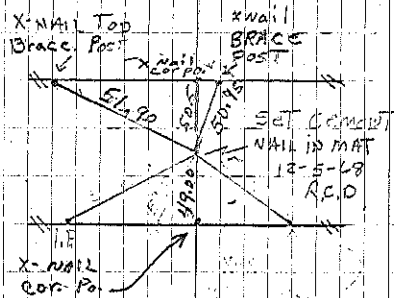 X-NAIL Top
Brace Post
x nail
BRACE
POST
x nail
Cor Po.
51.90
50.95
Set Cement
NAIL IN MAT
12-5-68
R.C.D
49.00
X-NAIL
Cor. Po.